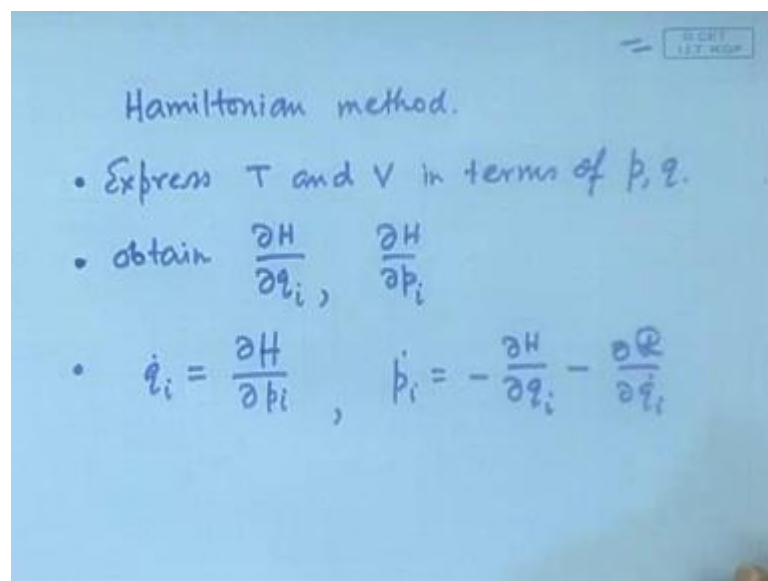 © CET
I.I.T. KGP
Hamiltonian method.
• Express T and V in terms of p, q.
• obtain ∂H/∂q_i, ∂H/∂p_i
• q̇_i = ∂H/∂p_i, ṗ_i = - ∂H/∂q_i - ∂R/∂q̇_i